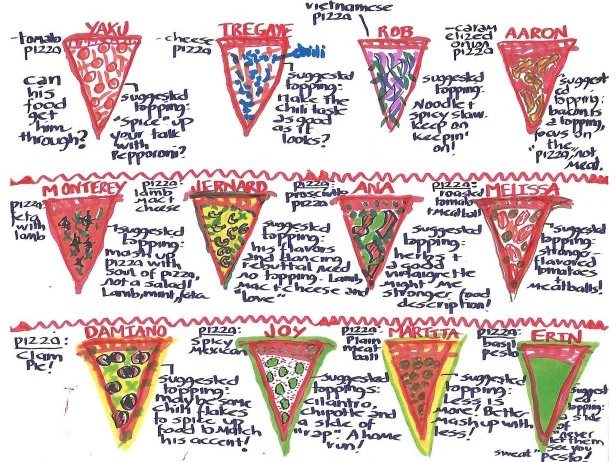 YAKU
-tomato
pizza
can
his
food
get
him
through?
suggested
topping:
"spice" up
your talk
with
Pepperoni?
TREGAYE
-cheese
pizza
chili
suggested
topping:
Make the
chili taste
as good
as it
looks?
vietnamese
pizza
ROB
suggested
topping:
Noodle +
spicy slaw.
keep on
keepin'
on!
-caram
elized
onion
pizza
AARON
"suggest
ed
topping:
bacon is
a topping,
focus on
the
"pizza" not
meat.
MONTEREY
pizza:
feta
with
lamb
suggested
topping:
mash up
pizza with
soul of pizza,
not a salad!
Lamb, mint, feta
pizza:
lamb
mac +
cheese
JERNARD
suggested
topping:
his flavors
and dancing
rebuttal need
no topping. Lamb,
mac + cheese and
"love"
pizza:
prosciutto
pizza
ANA
suggested
topping:
herbs +
a good
vinaigrette
might me
stronger food
description!
pizza:
roasted
tomato
+ meatball
MELISSA
"suggested
topping:
stronger
flavored
tomatoes
+
meatballs!
DAMIANO
pizza:
Clam
Pie!
suggested
topping:
maybe some
chili flakes
to spice up
food to match
his accent!
pizza:
Spicy
Mexican
JOY
suggested
toppings:
cilantro,
chipotle and
a side of
"rap". A home
run!
pizza:
Plain
meat
ball
MARTITA
suggested
topping:
Less is
more! Better
mash up with
less!
pizza:
basil
pesto
ERIN
suggested
topping:
a side
of
"never
let them
see you
sweat" pesto!